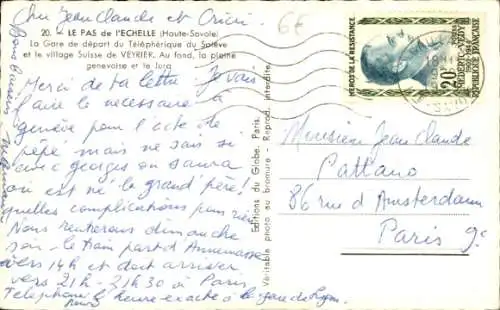 Cher Jean Claude et
6€
20. - LE PAS de l'ECHELLE (Haute-Savoie)
La Gare de départ du Téléphérique du Salève
et le village Suisse de VEYRIER. Au fond, la plaine
genevoise et le Jura
Merci de ta lettre. Je vais
faire le nécessaire à
genève pour l'acte de
pépé mais ne sais si
avec georges on saura
où est né le grand père!
quelles complications pour rien
Nous rentrerons dimanche
soir - le train part d'Annemasse
vers 14h et doit arriver
vers 21h - 21h30 à Paris
Téléphone l'heure exacte à la gare de Lyon
Bons baisers
Editions du Globe, Paris.
Véritable photo au bromure - Reprod. interdite.
HEROS DE LA RESISTANCE
20F
REPUBLIQUE FRANÇAISE
Monsieur Jean Claude
Cattano
86 rue d'Amsterdam
Paris 9e